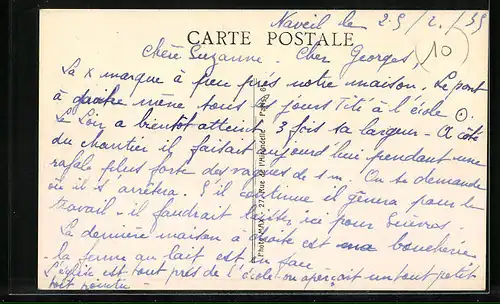 Naveil le 25/2/39
CARTE POSTALE
(10)
Chère Suzanne. Cher Georges,
La x marque à peu près notre maison. Le pont
à gauche mène tous les jours Titi à l'école ⊙.
Le Loir a bientôt atteint 3 fois sa largeur - A côté
du chantier il faisait aujourd'hui pendant une
rafale plus forte des vagues de 1 m. On se demande
où il s'arrêtera. S'il continue il gênera pour le
travail - il faudrait ici pour
La dernière maison à droite est ma boucherie
la ferme au lait est en face
L'église est tout près de l'école on aperçoit un tout petit
bout pointu -
Photo MAX - 27, Rue de l'Hirondelle - Paris 6e